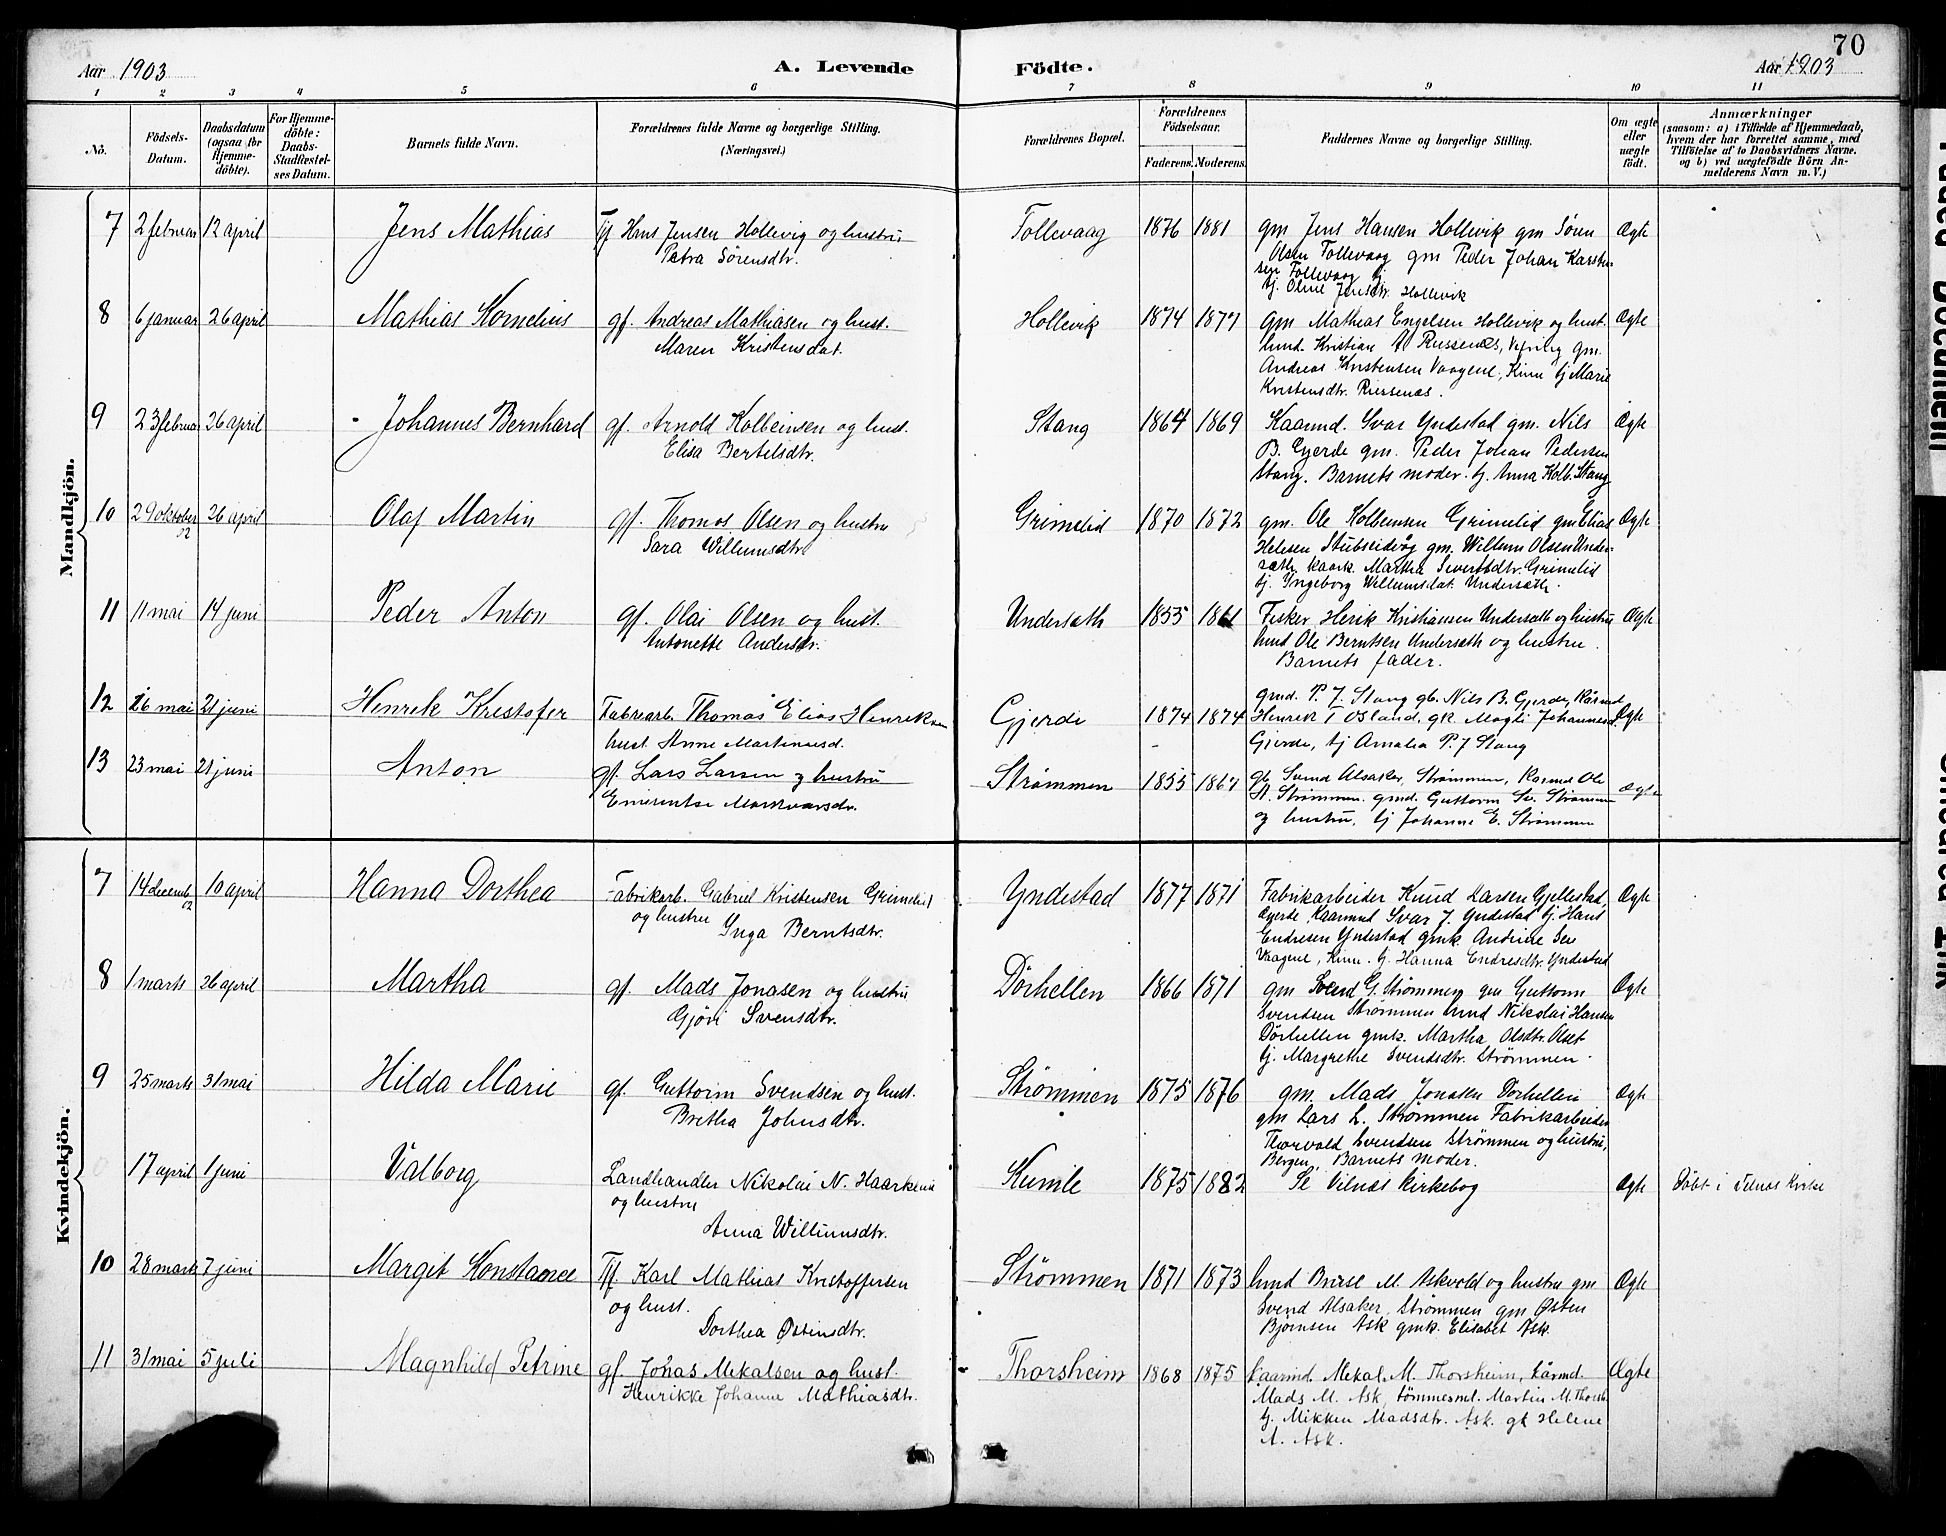 70
Aar 1903
A. Levende
Födte.
Aar 1903
1 2 3 4 5 6 7 8 9 10 11
No.
Födsels-Datum.
Daabsdatum (ogsaa for Hjemme-döbte).
For Hjemme-döbte: Daabs-Stadfæstel-ses Datum.
Barnets fulde Navn.
Forældrenes fulde Navne og borgerlige Stilling.
(Næringsvei.)
Forældrenes Bopæl.
Forældrenes Födselsaar.
Faderens. Moderens.
Faddernes Navne og borgerlige Stilling.
Om ægte eller uægte födt.
Anmærkninger
(saasom: a) i Tilfælde af Hjemmedaab, hvem der har forrettet samme, med Tilföielse af to Daabsvidners Navne, og b) ved uægtefödte Börn An-melderens Navn m. V.)
Mandkjön.
7 2 februar 12 april Jens Mathias Hans Jensen Hollevig og hustru
Petra Sörensdtr.
Tollevaag 1876 1881 gm Jens Hansen Hollevik gm Sören
Olsen Tollevaag gm Peder Johan Karsten-
sen Tollevaag
tj. Oline Jensdtr. Hollevik
Ægte
8 6 januar 26 april Mathias Kornelius gf. Andreas Mathiasen og hust.
Maren Kristensdat.
Hollevik 1874 1877 gm Mathias Engelsen Hollevik og hust.
hmd. Kristian Russenes, gm.
Andreas Kristensen Vaagene, Kinn tj Marie
Kristensdtr. Russenes.
Ægte
9 23 februar 26 april Johannes Bernhard gf. Arnold Kolbeinsen og hust.
Elisa Bertelsdtr.
Stang 1864 1869 Kaarmd. Ivar Yndestad gm. Nils
B. Gjerde gm. Peder Johan Pedersen
Stang. Barnets moder. tj. Anna Kolb. Stang
Ægte
10 29 oktober 02 26 april Olaf Martin gf. Thomas Olsen og hustru
Sara Willumsdtr.
Grimelid 1870 1872 gm. Ole Kolbeinsen Grimelid gm Elias
Helgesen Stubseidvåg gm. Willum Olsen Under-
sæth kaark. Martha Sivertsdtr. Grimelid
tj. Ingeborg Willumsdat. Undersæth.
Ægte
11 11 mai 14 juni Peder Anton gf. Olai Olsen og hust.
Antonette Andersdtr.
Undersæth 1855 1861 Fisker Henrik Kristiansen Undersæth og hustru
hmd Ole Berntsen Undersæth og hustru.
Barnets fader.
Ægte
12 26 mai 21 juni Henrik Kristofer Fabrarb. Thomas Elias Henriksen
hust. Anne Martinusd.
Gjerde 1874 1874 gmd. P. J. Stang gb. Nils B. Gjerde, Kårmd
Henrik T. Osland, gk. Magti Johannesd.
Gjerde, tj Amalia P. J Stang
Ægte
13 23 mai 21 juni Anton gf. Lars Larsen og hustru
Emerentse Markvarsdr.
Strömmen 1855 1867 gb. Svend Alsaker, Strömmen, Kaarmd Ole
A. Strömmen. gmd. Guttorm Sv. Strömmen
og hustru, tj Johanne E. Strömmen
Ægte
Kvindekjön.
7 14 decemb 02 10 april Hanna Dorthea Fabrikarb. Gabriel Kristensen Grimelid
og hustru
Inga Berntsdtr.
Yndestad 1877 1871 Fabrikarbeider Knud Larsen Gjellestad,
Gjerde, Kaarmd Ivar J. Yndestad tj. Hans
Endresen Yndestad gmk. Andrine
Vaagene, Kinn. tj. Hanna Endresdtr. Yndestad
Ægte
8 1 marts 26 april Martha gf. Mads Jonasen og hustru
Gjöri Svensdtr.
Dörhellen 1866 1871 gm Svend G. Strömmen gm Guttorm
Svendsen Strömmen hmd Nikolai Hansen
Dörhellen gmk. Martha Olsdtr. Olset
tj. Margrethe Svendsdtr. Strömmen.
Ægte
9 25 marts 31 mai Hilda Marie gf. Guttorm Svendsen og hust.
Bretha Johnsdtr.
Strömmen 1875 1876 gm. Mads Jonasen Dörhellen
gm Lars L. Strömmen Fabrikarbeider
Thorvald Svendsen Strömmen og hustru,
Bergen, Barnets moder.
Ægte
17 april 1 juni Valborg Landhandler Nikolai N. Haarklau
og hustru
Anna Willumsdtr.
Kumle 1875 1882 Se Vilnæs Kirkebog Ægte Döbt i Vilnæs Kirke
10 28 marts 7 juni Margit Konstance Karl Mathias Kristoffersen
og hust.
Dorthea Östensdtr.
Strömmen 1871 1873 hmd M. Askvold og hustru gm
Svend Alsaker, Strömmen gm Østen
Björnsen Ask gmk. Elisabet Ask.
Ægte
11 31 mai 5 juli Magnhild Petrine gf. Jonas Mekalsen og hust.
Henrikke Johanne Mathiasdtr.
Thorsheim 1868 1875 kaarmd. Mekal M. Thorsheim, kårmd.
Mads M. Ask, tömmermd. Martin M. Thorsh.
tj. Mikken Madsdtr. Ask. gk Helene
A. Ask.
Ægte